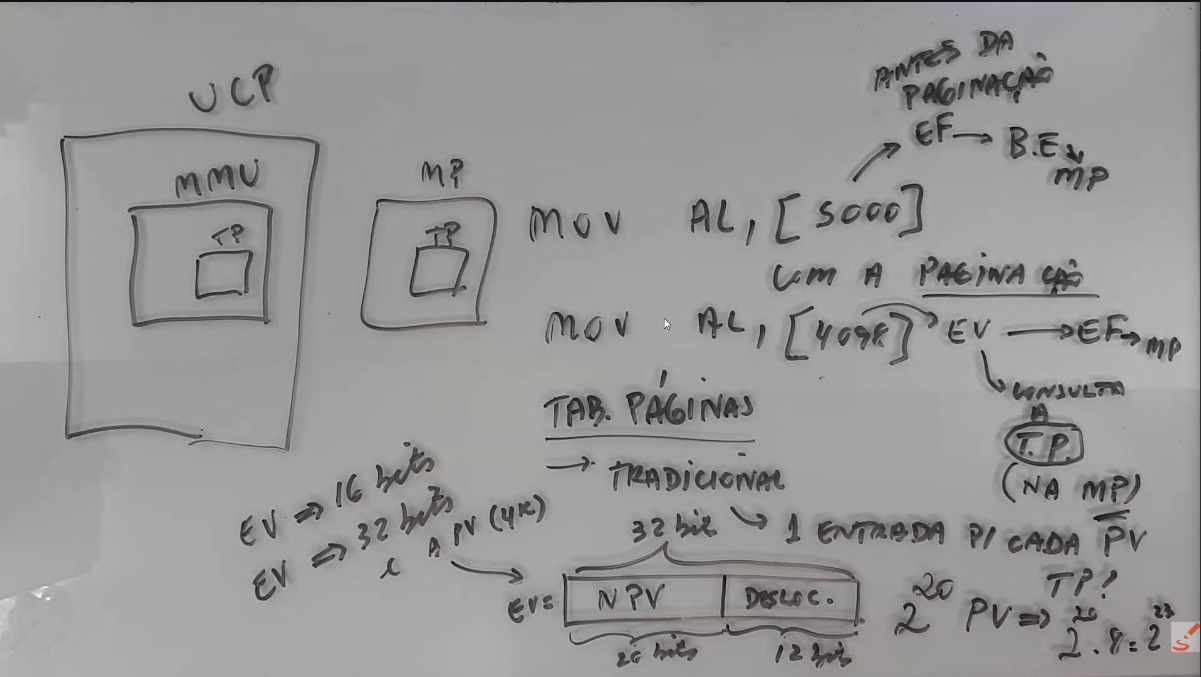 UCP
MMU
TP
MP
TP
ANTES DA
PAGINAÇÃO
EF → B.E → MP
MOV AL, [5000]
COM A PAGINAÇÃO
MOV AL, [4098] EV → EF → MP
CONSULTA
A
T.P.
(NA MP)
TAB. PÁGINAS
→ TRADICIONAL
↳ 1 ENTRADA P/ CADA PV
EV ⇒ 16 bits
EV ⇒ 32 bits
E A PV (4K)
32 bit
EV = NPV DESLOC.
20 bits 12 bits
TP?
2^20 PV ⇒ 2^20 . 8 = 2^23
S